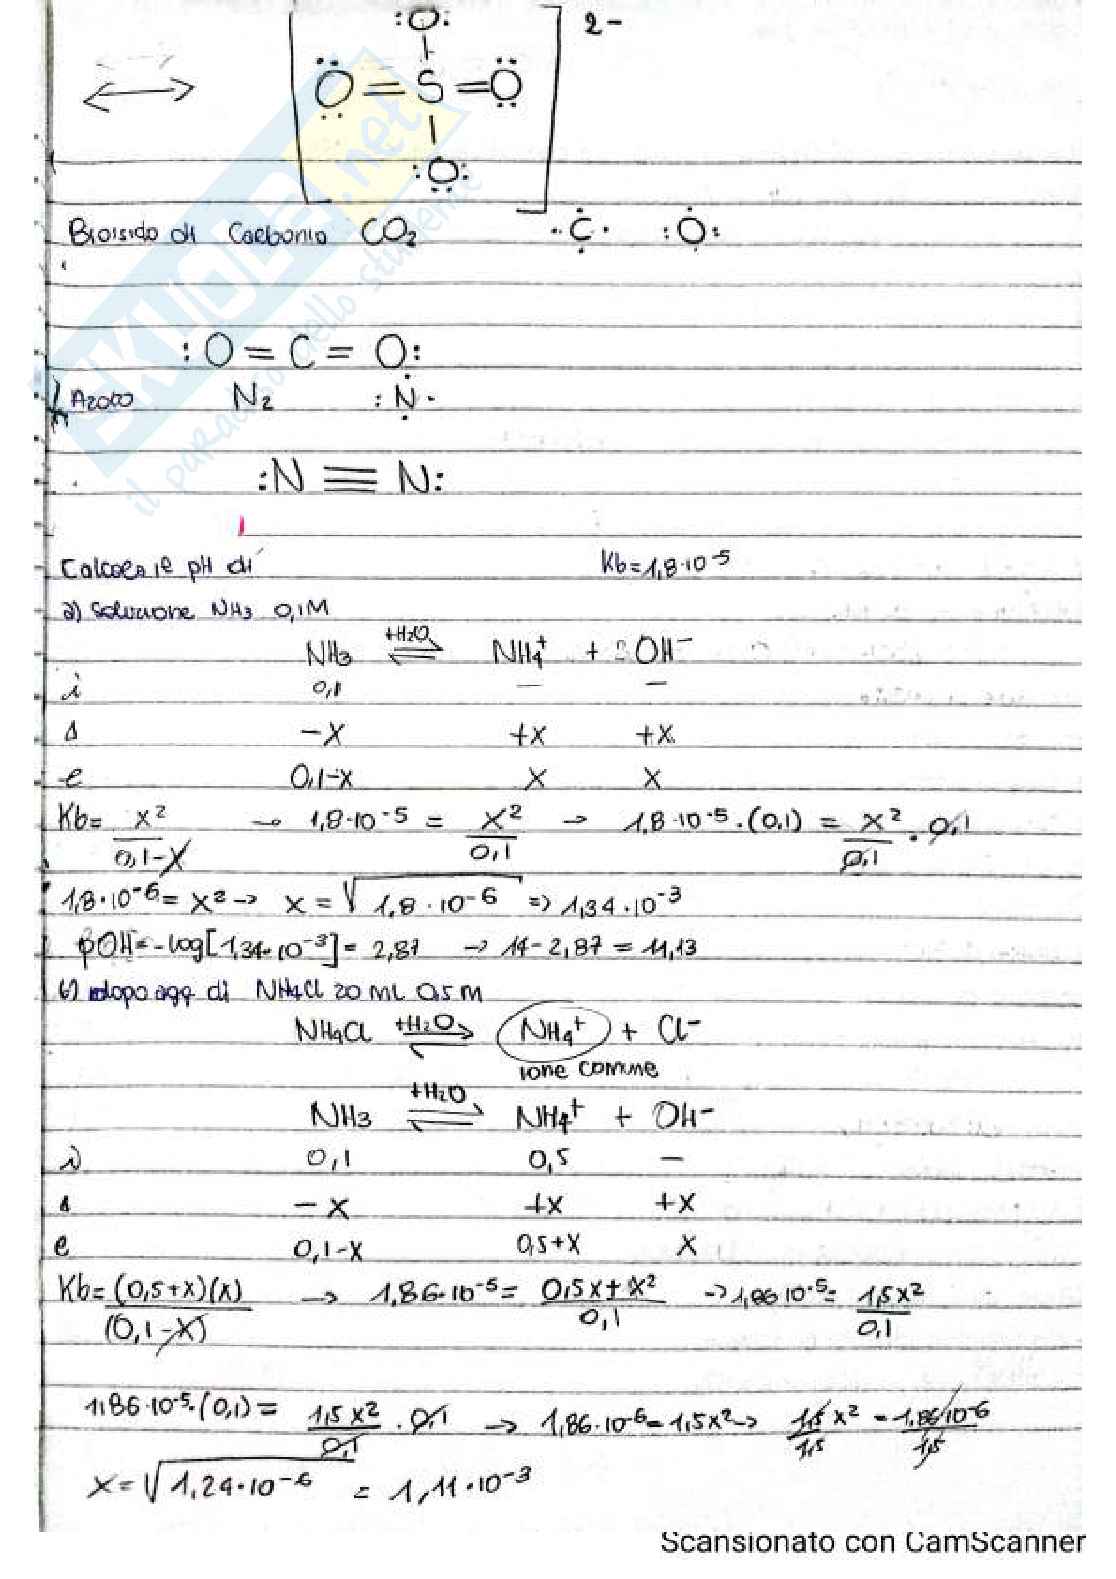 :O: 2-
O = S = O
:O:
Biossido di Carbonio CO₂ ·C· :O:
:O = C = O:
Azoto N₂ :N·
:N ≡ N:
Calcola il pH di Kb=1,8·10⁻⁵
a) soluzione NH₃ 0,1M
NH₃ +H₂O ⇌ NH₄⁺ + OH⁻
i 0,1 — —
Δ -x +x +x
e 0,1-x x x
Kb= x²/(0,1-x) → 1,8·10⁻⁵ = x²/0,1 → 1,8·10⁻⁵·(0,1) = x²/0,1 · 0,1
1,8·10⁻⁶ = x² → x = √1,8·10⁻⁶ => 1,34·10⁻³
pOH=-log[1,34·10⁻³] = 2,87 → 14-2,87 = 11,13
b) dopo agg di NH₄Cl 20 mL 0,5 M
NH₄Cl +H₂O ⇌ NH₄⁺ + Cl⁻
ione comune
NH₃ +H₂O ⇌ NH₄⁺ + OH⁻
i 0,1 0,5 —
Δ -x +x +x
e 0,1-x 0,5+x x
Kb= (0,5+x)(x)/(0,1-x) → 1,86·10⁻⁵ = 0,5x+x²/0,1 → 1,86·10⁻⁵= 1,5x²/0,1
1,86·10⁻⁵·(0,1) = 1,5x²/0,1 · 0,1 → 1,86·10⁻⁶=1,5x² → 1,5/1,5 x² = 1,86·10⁻⁶/1,5
x = √1,24·10⁻⁶ = 1,11·10⁻³
Scansionato con CamScanner
SKUOLA.net
il paradiso dello studente